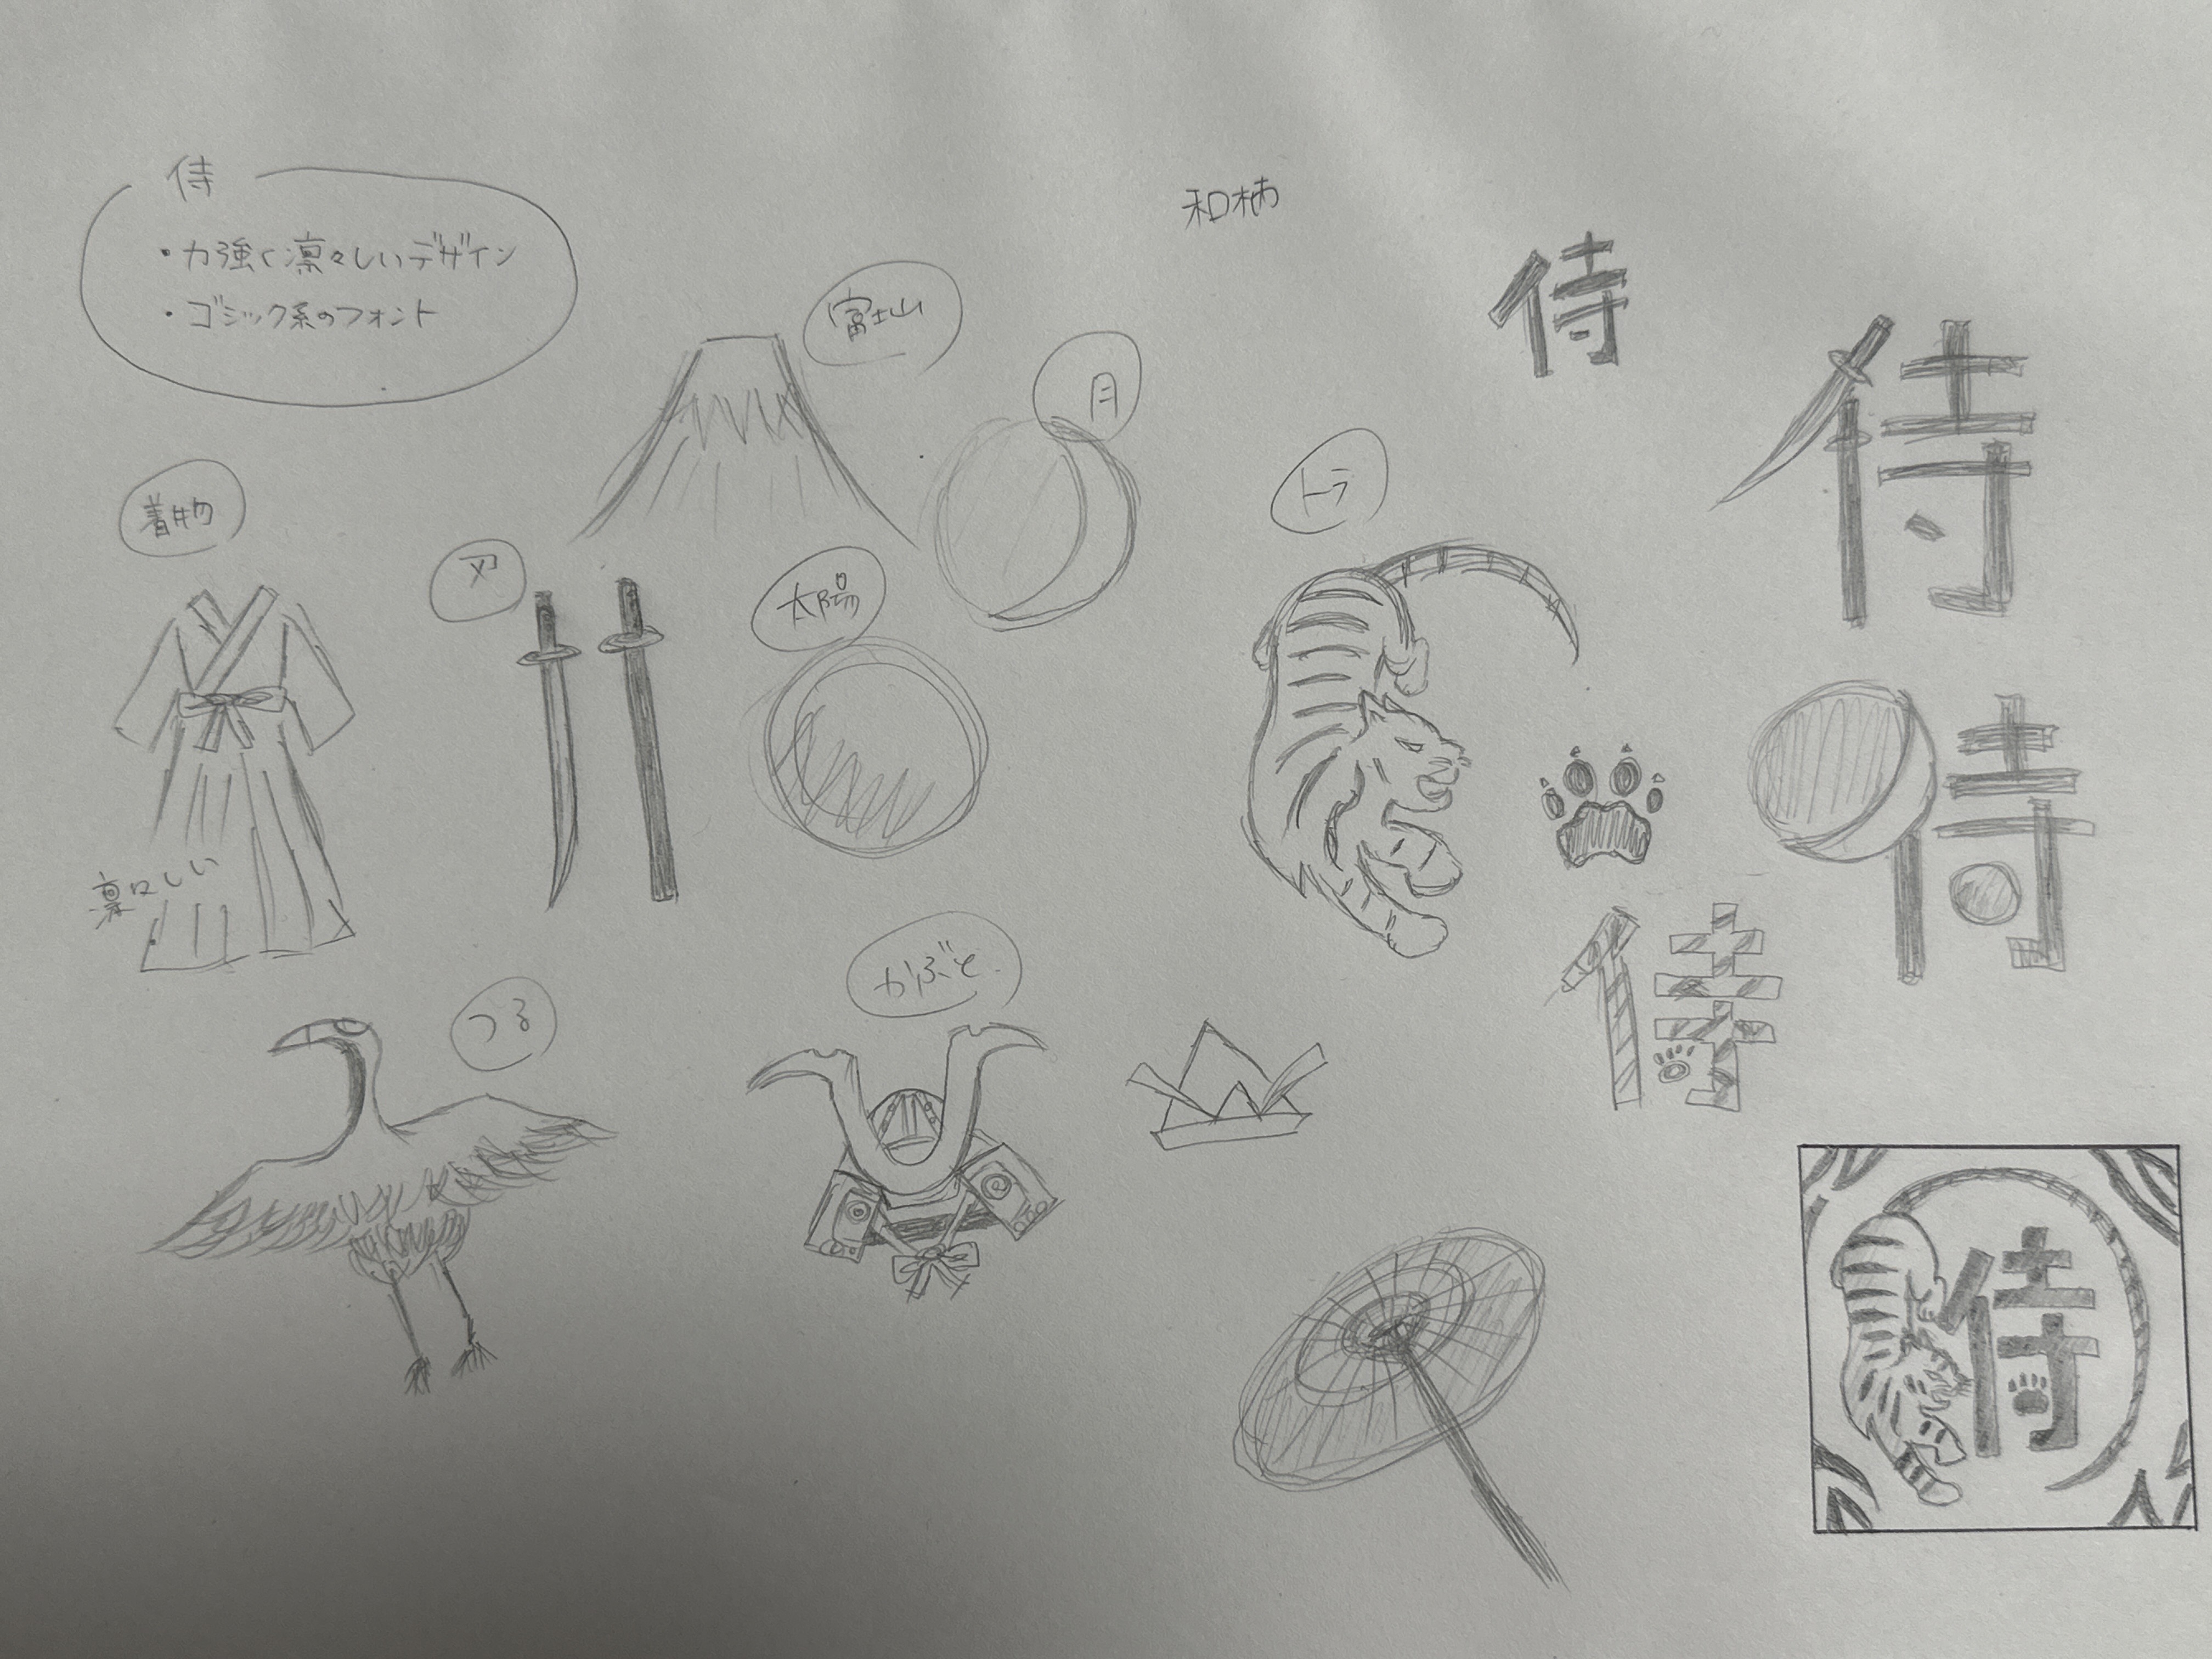 侍
・力強く凛々しいデザイン
・ゴシック系のフォント
和柄
富士山
月
着物
刀
太陽
トラ
凛々しい
つる
かぶと
侍
侍
侍
侍
侍